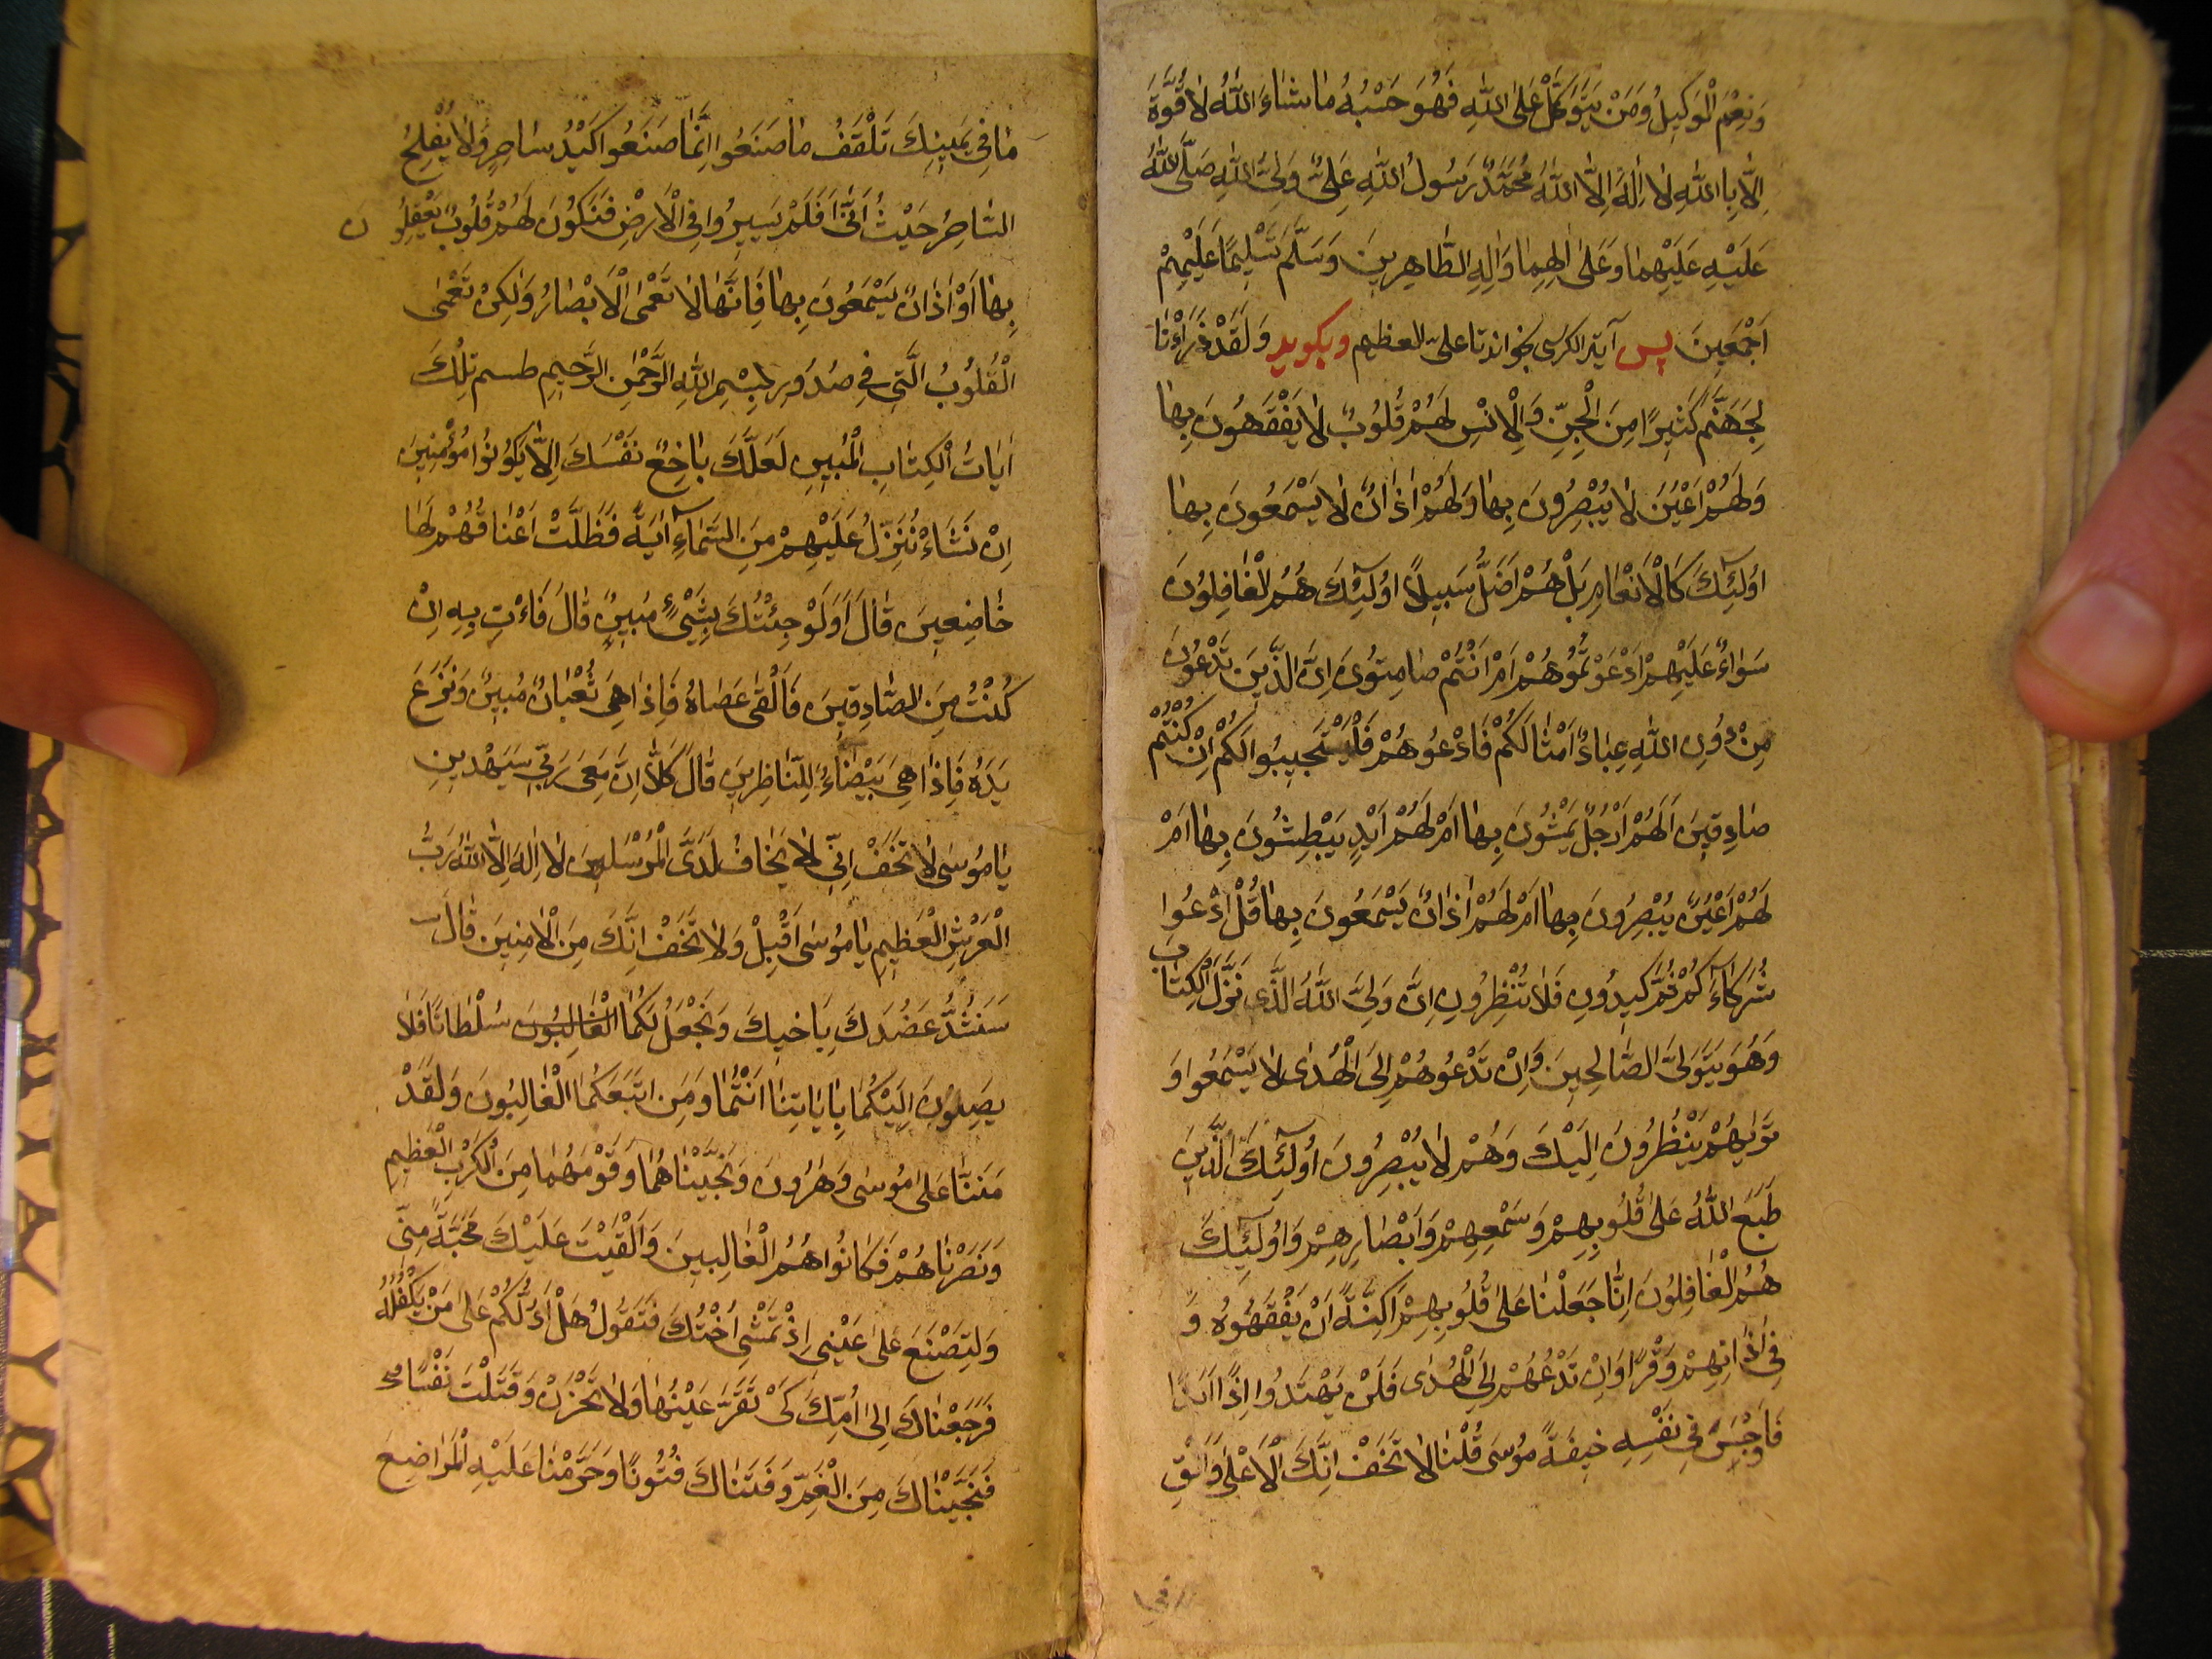 وَنِعْمَ الْوَكِيلُ وَمَنْ يَتَوَكَّلْ عَلَى اللّٰهِ فَهُوَ حَسْبُهُ مَا شَاءَ اللّٰهُ لَا قُوَّةَ
اِلَّا بِاللّٰهِ لَا اِلٰهَ اِلَّا اللّٰهُ مُحَمَّدٌ رَسُولُ اللّٰهِ عَلِيٌّ وَلِيُّ اللّٰهِ صَلَّى اللّٰهُ
عَلَيْهِ عَلَيْهِمَا وَعَلَى اٰلِهِمَا وَاٰلِهِ الطَّاهِرِينَ وَسَلَّمَ تَسْلِيمًا عَلَيْهِمْ
اَجْمَعِينَ پس آية الكرسى بخواند تا على العظيم وبكويد وَلَقَدْ ذَرَاْنَا
لِجَهَنَّمَ كَثِيرًا مِنَ الْجِنِّ وَالْاِنْسِ لَهُمْ قُلُوبٌ لَا يَفْقَهُونَ بِهَا
وَلَهُمْ اَعْيُنٌ لَا يُبْصِرُونَ بِهَا وَلَهُمْ اٰذَانٌ لَا يَسْمَعُونَ بِهَا
اُولٰئِكَ كَالْاَنْعَامِ بَلْ هُمْ اَضَلُّ سَبِيلًا اُولٰئِكَ هُمُ الْغَافِلُونَ
سَوَاءٌ عَلَيْهِمْ اَدَعَوْتُمُوهُمْ اَمْ اَنْتُمْ صَامِتُونَ اِنَّ الَّذِينَ تَدْعُونَ
مِنْ دُونِ اللّٰهِ عِبَادٌ اَمْثَالُكُمْ فَادْعُوهُمْ فَلْيَسْتَجِيبُوا لَكُمْ اِنْ كُنْتُمْ
صَادِقِينَ اَلَهُمْ اَرْجُلٌ يَمْشُونَ بِهَا اَمْ لَهُمْ اَيْدٍ يَبْطِشُونَ بِهَا اَمْ
لَهُمْ اَعْيُنٌ يُبْصِرُونَ بِهَا اَمْ لَهُمْ اٰذَانٌ يَسْمَعُونَ بِهَا قُلْ ادْعُوا
شُرَكَاءَكُمْ ثُمَّ كِيدُونِ فَلَا تُنْظِرُونِ اِنَّ وَلِيِّيَ اللّٰهُ الَّذِى نَزَّلَ الْكِتَابَ
وَهُوَ يَتَوَلَّى الصَّالِحِينَ وَاِنْ تَدْعُوهُمْ اِلَى الْهُدَى لَا يَسْمَعُوا وَ
تَرٰيهُمْ يَنْظُرُونَ اِلَيْكَ وَهُمْ لَا يُبْصِرُونَ اُولٰئِكَ الَّذِينَ
طَبَعَ اللّٰهُ عَلَى قُلُوبِهِمْ وَسَمْعِهِمْ وَاَبْصَارِهِمْ وَاُولٰئِكَ
هُمُ الْغَافِلُونَ اِنَّا جَعَلْنَا عَلَى قُلُوبِهِمْ اَكِنَّةً اَنْ يَفْقَهُوهُ وَ
فِى اٰذَانِهِمْ وَقْرًا وَاِنْ تَدْعُهُمْ اِلَى الْهُدَى فَلَنْ يَهْتَدُوا اِذًا اَبَدًا
فَاَوْجَسَ فِى نَفْسِهِ خِيفَةً مُوسَى قُلْنَا لَا تَخَفْ اِنَّكَ الْاَعْلَى وَاَلْقِ
مَا فِى يَمِينِكَ تَلْقَفْ مَا صَنَعُوا اِنَّمَا صَنَعُوا كَيْدُ سَاحِرٍ وَلَا يُفْلِحُ
السَّاحِرُ حَيْثُ اَتَى اَفَلَمْ يَسِيرُوا فِى الْاَرْضِ فَتَكُونَ لَهُمْ قُلُوبٌ يَعْقِلُونَ
بِهَا اَوْ اٰذَانٌ يَسْمَعُونَ بِهَا فَاِنَّهَا لَا تَعْمَى الْاَبْصَارُ وَلٰكِنْ تَعْمَى
الْقُلُوبُ الَّتِى فِى صُدُورِ بِسْمِ اللّٰهِ الرَّحْمٰنِ الرَّحِيمِ طسم تِلْكَ
اٰيَاتُ الْكِتَابِ الْمُبِينِ لَعَلَّكَ بَاخِعٌ نَفْسَكَ اِلَّا يَكُونُوا مُؤْمِنِينَ
اِنْ نَشَاْ نُنَزِّلْ عَلَيْهِمْ مِنَ السَّمَاءِ اٰيَةً فَظَلَّتْ اَعْنَاقُهُمْ لَهَا
خَاضِعِينَ قَالَ اَوَلَوْ جِئْتُكَ بِشَيْءٍ مُبِينٍ قَالَ فَاْتِ بِهِ اِنْ
كُنْتَ مِنَ الصَّادِقِينَ فَاَلْقَى عَصَاهُ فَاِذَا هِيَ ثُعْبَانٌ مُبِينٌ وَنَزَعَ
يَدَهُ فَاِذَا هِيَ بَيْضَاءُ لِلنَّاظِرِينَ قَالَ كَلَّا اِنَّ مَعِىَ رَبِّى سَيَهْدِينِ
يَا مُوسَى لَا تَخَفْ اِنِّى لَا يَخَافُ لَدَيَّ الْمُرْسَلُونَ لَا اِلٰهَ اِلَّا اللّٰهُ رَبُّ
الْعَرْشِ الْعَظِيمِ يَا مُوسَى اَقْبِلْ وَلَا تَخَفْ اِنَّكَ مِنَ الْاٰمِنِينَ قَالَ
سَنَشُدُّ عَضُدَكَ بِاَخِيكَ وَنَجْعَلُ لَكُمَا الْغَالِبُونَ سُلْطَانًا فَلَا
يَصِلُونَ اِلَيْكُمَا بِاٰيَاتِنَا اَنْتُمَا وَمَنِ اتَّبَعَكُمَا الْغَالِبُونَ وَلَقَدْ
مَنَنَّا عَلَى مُوسَى وَهٰرُونَ وَنَجَّيْنَاهُمَا وَقَوْمَهُمَا مِنَ الْكَرْبِ الْعَظِيمِ
وَنَصَرْنَاهُمْ فَكَانُوا هُمُ الْغَالِبِينَ وَاَلْقَيْتُ عَلَيْكَ مَحَبَّةً مِنِّى
وَلِتُصْنَعَ عَلَى عَيْنِى اِذْ تَمْشِى اُخْتُكَ فَتَقُولُ هَلْ اَدُلُّكُمْ عَلَى مَنْ يَكْفُلُهُ
فَرَجَعْنَاكَ اِلَى اُمِّكَ كَىْ تَقَرَّ عَيْنُهَا وَلَا تَحْزَنَ وَقَتَلْتَ نَفْسًا
فَنَجَّيْنَاكَ مِنَ الْغَمِّ وَفَتَنَّاكَ فُتُونًا وَحَرَّمْنَا عَلَيْهِ الْمَرَاضِعَ